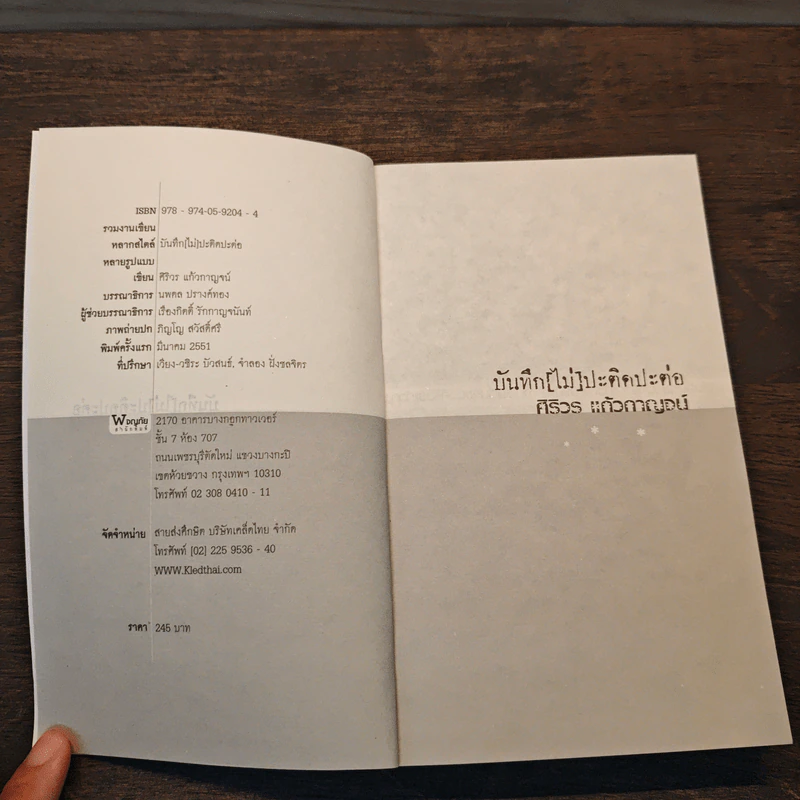 ISBN 978 - 974-05-9204 - 4
รวมงานเขียน
หลากสไตล์ บันทึก[ไม่]ปะติดปะต่อ
หลายรูปแบบ
เขียน ศิริวร แก้วกาญจน์
บรรณาธิการ นพดล ปรางค์ทอง
ผู้ช่วยบรรณาธิการ เรืองกิตติ์ รักกาญจนันท์
ภาพถ่ายปก ภิญโญ สวัสดิ์ศรี
พิมพ์ครั้งแรก มีนาคม 2551
ที่ปรึกษา เวียง-วชิระ บัวสนธ์, จำลอง ฝั่งชลจิตร
ผจญภัย 2170 อาคารบางกอกทาวเวอร์
สำนักพิมพ์
ชั้น 7 ห้อง 707
ถนนเพชรบุรีตัดใหม่ แขวงบางกะปิ
เขตห้วยขวาง กรุงเทพฯ 10310
โทรศัพท์ 02 308 0410 - 11
จัดจำหน่าย สายส่งศึกษิต บริษัทเคล็ดไทย จำกัด
โทรศัพท์ [02] 225 9536 - 40
WWW.Kledthai.com
ราคา 245 บาท
บันทึก[ไม่]ปะติดปะต่อ
ศิริวร แก้วกาญจน์